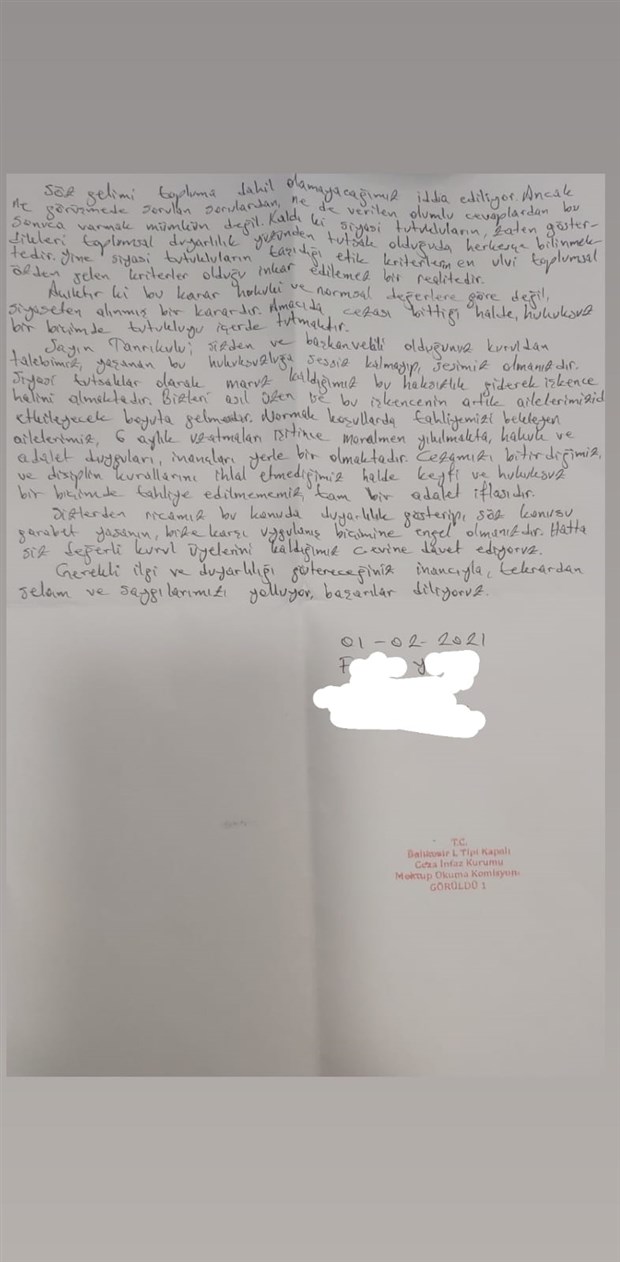 Söz gelimi topluma dahil olamayacağımız iddia ediliyor. Ancak
ne görüşmede sorulan sorulardan, ne de verilen olumlu cevaplardan bu
sonuca varmak mümkün değil. Kaldı ki siyasi tutukluların, zaten göster-
dikleri toplumsal duyarlılık yüzünden tutsak olduğunda herkesçe bilinmek-
tedir. Yine siyasi tutukluların taşıdığı etik kriterlerin en ulvi toplumsal
özden gelen kriterler olduğu inkar edilemez bir realitedir.
Açıktır ki bu karar hukuki ve normsal değerlere göre değil,
siyaseten alınmış bir karardır. Amacıda cezası bittiği halde, hukuksuz
bir biçimde tutukluyu içerde tutmaktır.
Sayın Tanrıkulu; sizden ve başkanvekili olduğunuz kuruldan
talebimiz, yaşanan bu hukuksuzluğa sessiz kalmayıp, sesimiz olmanızdır.
Siyasi tutsaklar olarak maruz kaldığımız bu haksızlık giderek işkence
halini almaktadır. Bizleri asıl üzen ise bu işkencenin artık ailelerimizid
etkileyecek boyuta gelmesidir. Normak koşullarda tahliyemizi bekleyen
ailelerimiz, 6 aylık uzatmaları işitince moralmen yıkılmakta, hukuk ve
adalet duyguları, inançları yerle bir olmaktadır. Cezamızı bitirdiğimiz,
ve disiplin kurallarını ihlal etmediğimiz halde keyfi ve hukuksuz
bir biçimde tahliye edilmememiz, tam bir adalet iflasıdır.
Sizlerden ricamız bu konuda duyarlılık gösterip, söz konusu
garabet yasanın, bize karşı uygulanış biçimine engel olmanızdır. Hatta
siz değerli kurul üyelerini kaldığımız cezaevine davet ediyoruz.
Gerekli ilgi ve duyarlılığı göstereceğiniz inancıyla, tekrardan
selam ve saygılarımızı yolluyor, başarılar diliyoruz.
01-02-2021
F Y
T.C.
Balıkesir L Tipi Kapalı
Ceza İnfaz Kurumu
Mektup Okuma Komisyonu
GÖRÜLDÜ 1